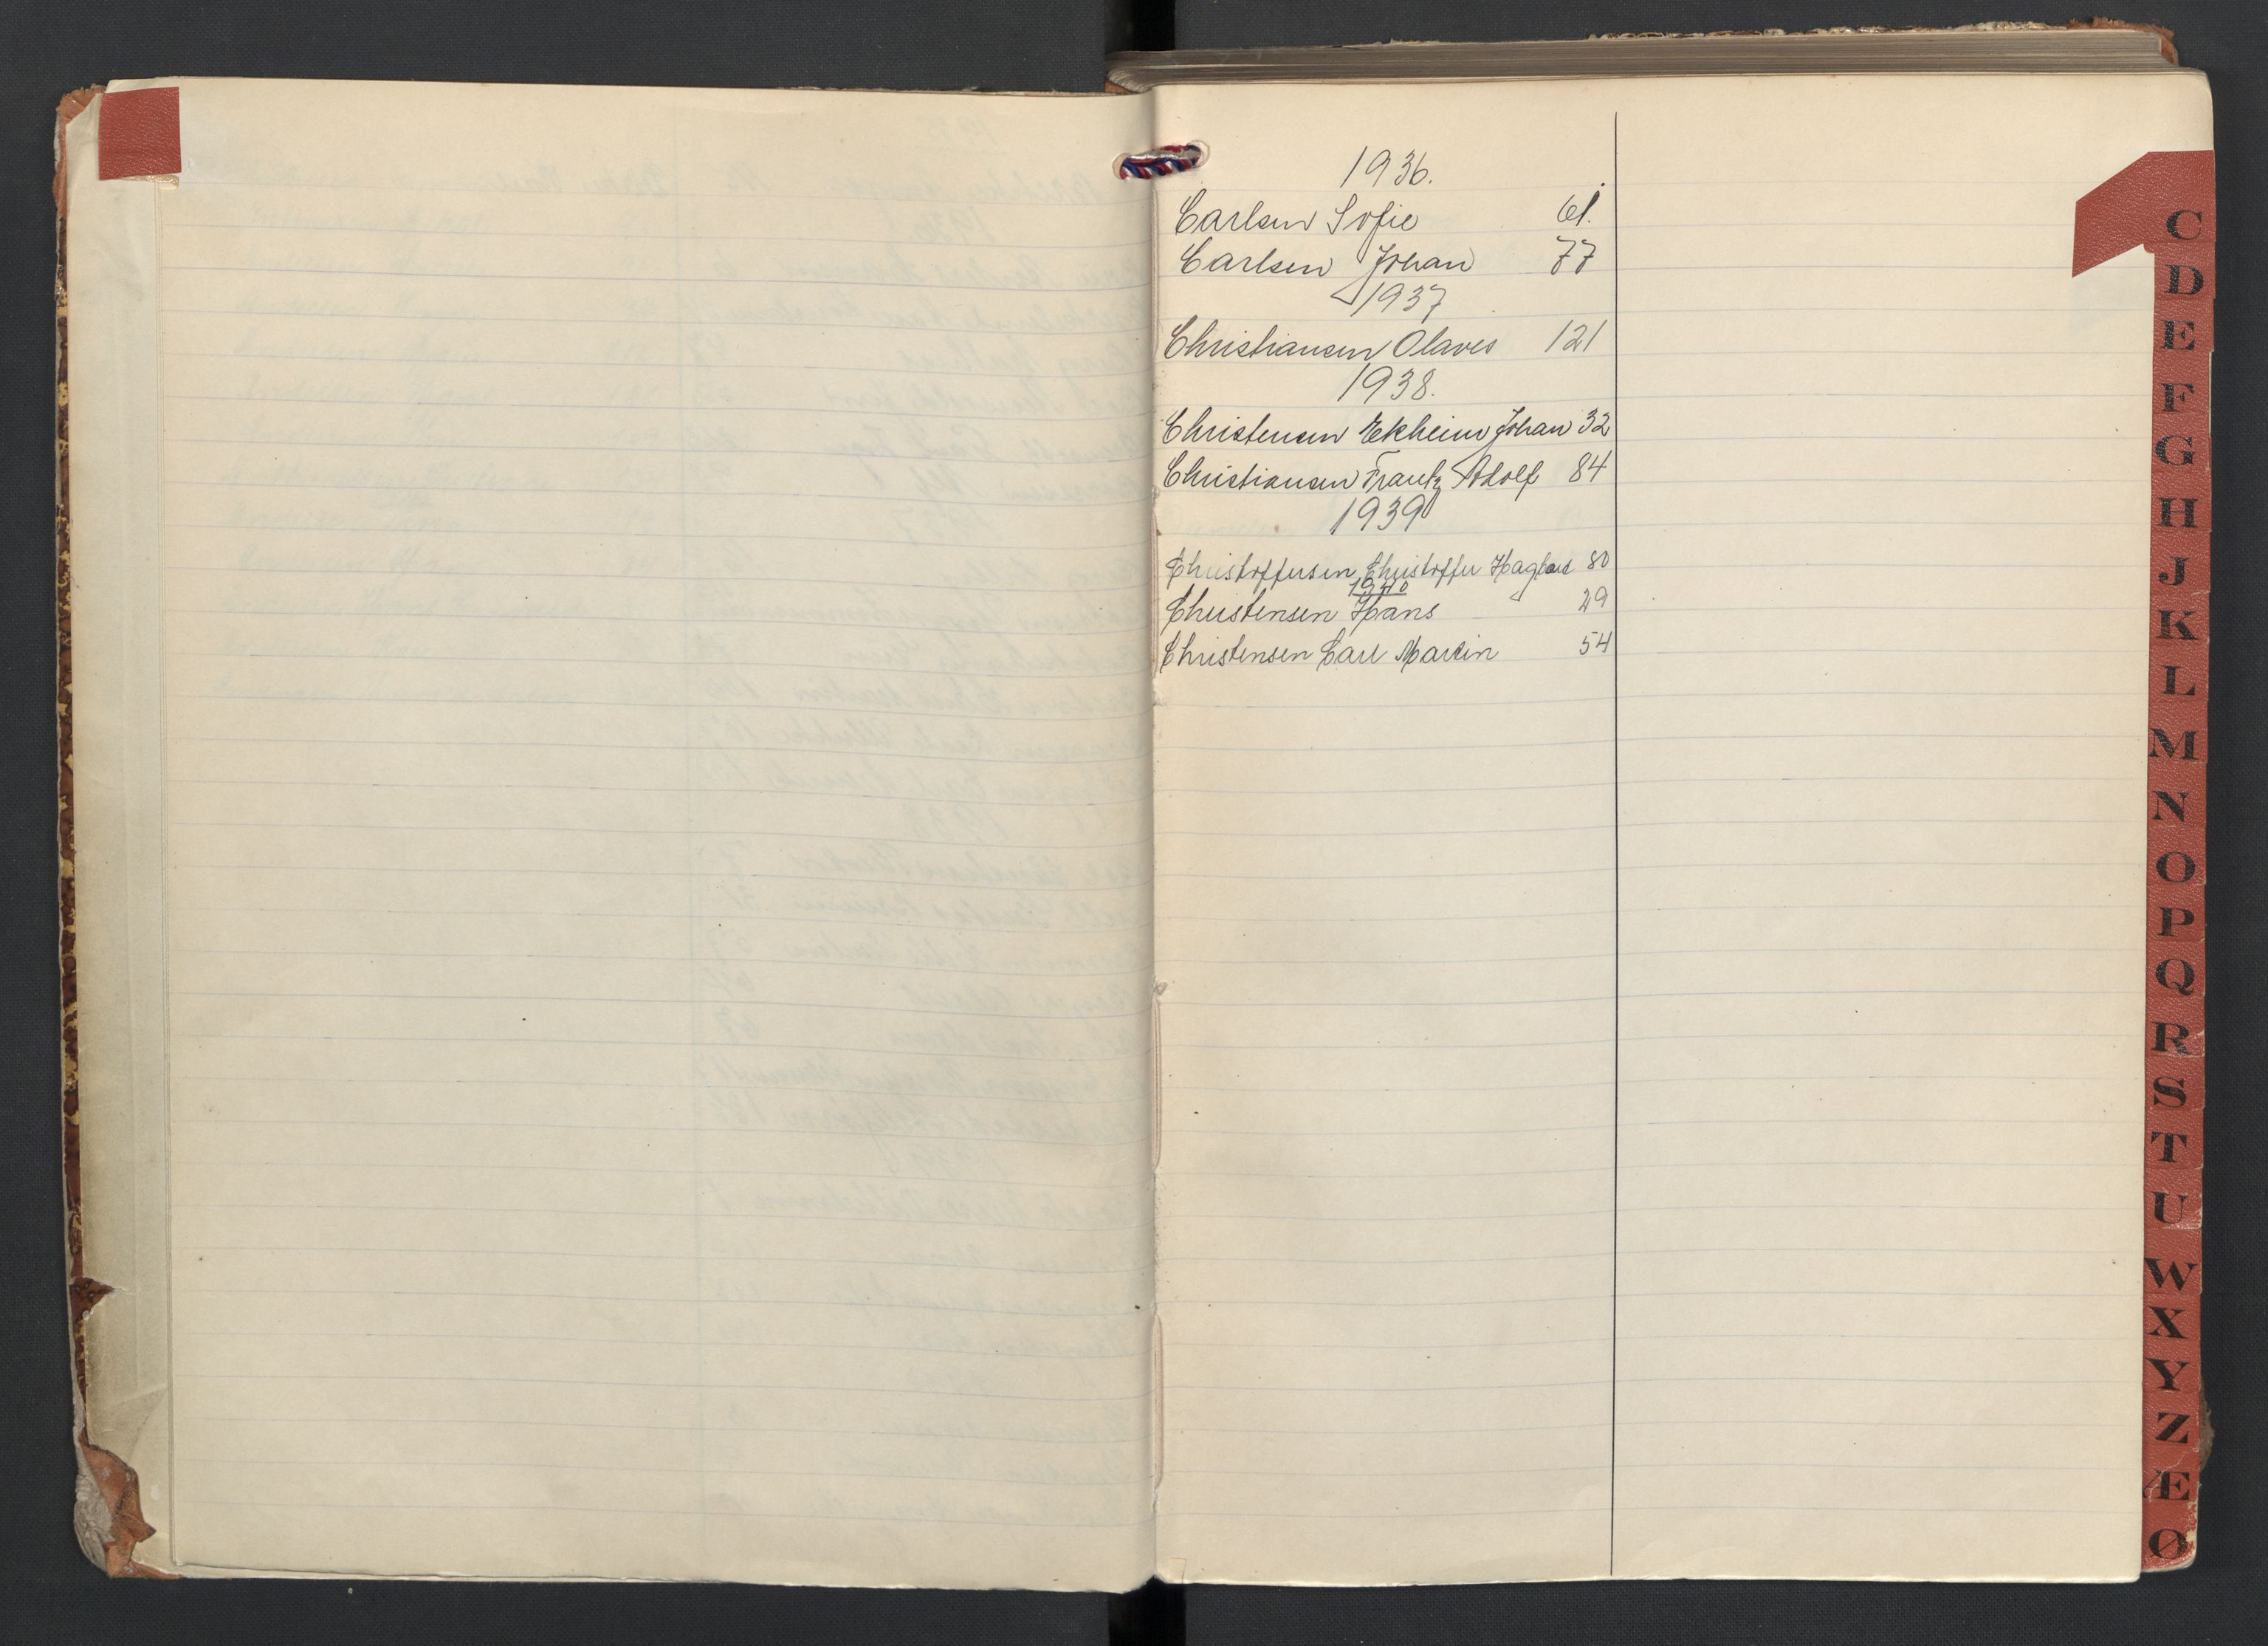 1936.
Carlsen Sofie 61.
Carlsen Johan 77
1937
Christiansen Olaves 121
1938.
Christensen Ekheim Johan 32
Christiansen Frantz Adolf 84
1939
Christoffersen Christoffer Hagbard 80
1940
Christensen Hans 29
Christensen Carl Martin 54
C
D
E
F
G
H
J
K
L
M
N
O
P
Q
R
S
T
U
W
X
Y
Z
Æ
Ø